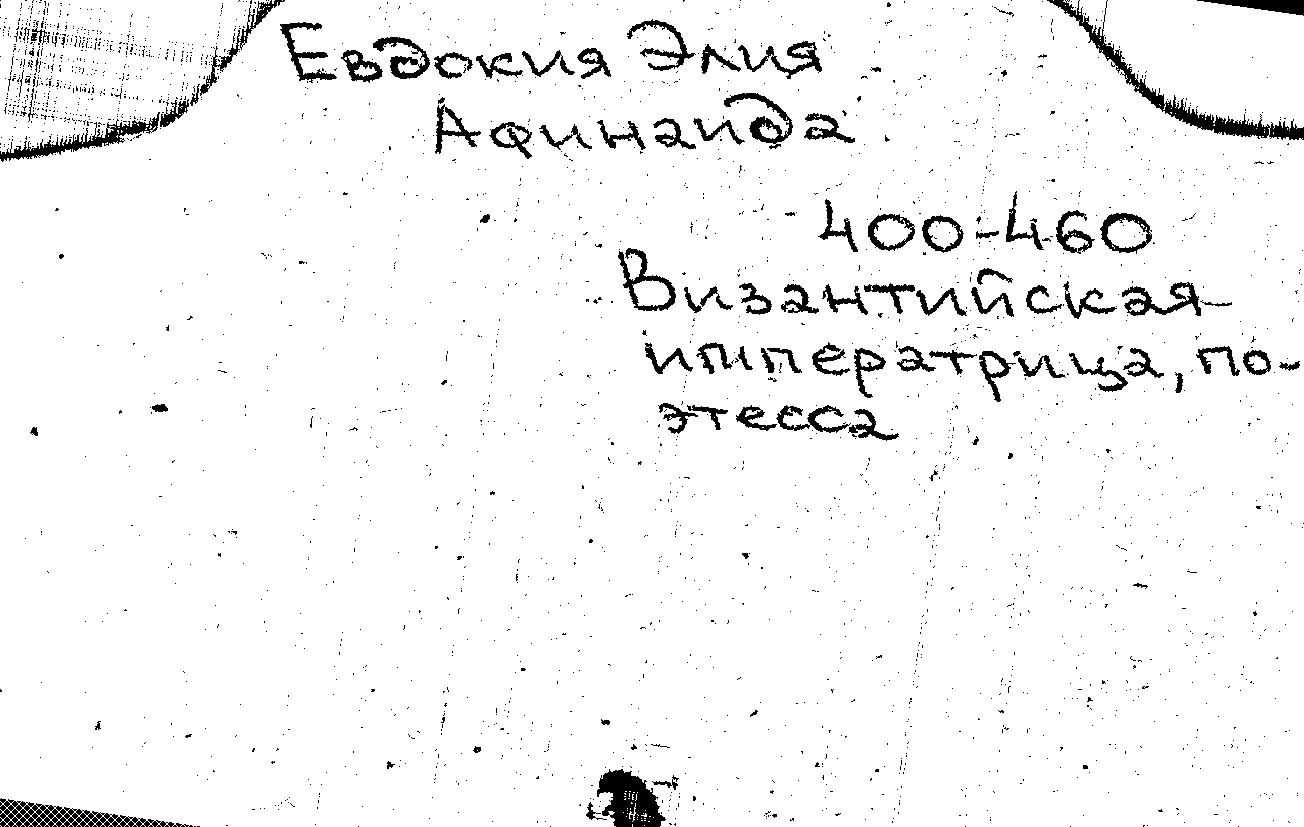 Евдокия Элия
Афинаида
400-460
Византийская
императрица, по-
этесса